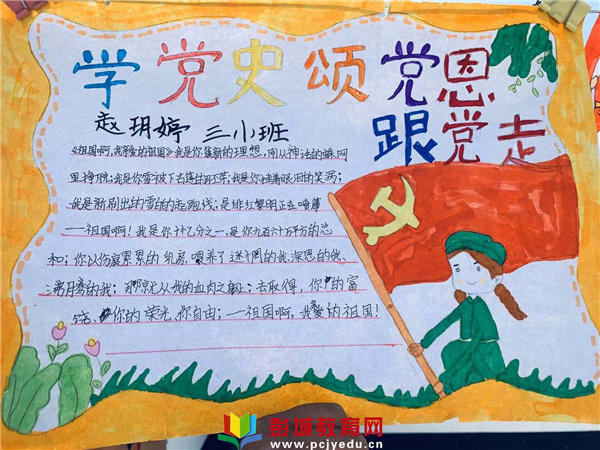 学党史 颂党恩
跟党走
赵玥婷 三小班
《祖国啊,我亲爱的祖国》我是你簇新的理想,刚从神话的蛛网
里挣脱;我是你雪被下古莲的胚芽;我是你挂着眼泪的笑涡;
我是新刷出的雪白的起跑线;是绯红黎明正在喷薄
一祖国啊!我是你十亿分之一,是你九百六十万平方的总
和;你以伤痕累累的乳房,喂养了迷惘的我、深思的我、
沸腾的我;那就从我的血肉之躯上去取得,你的富
饶、你的荣光、你自由;一祖国啊,我亲爱的祖国!
彭城教育网
www.pcjyedu.cn